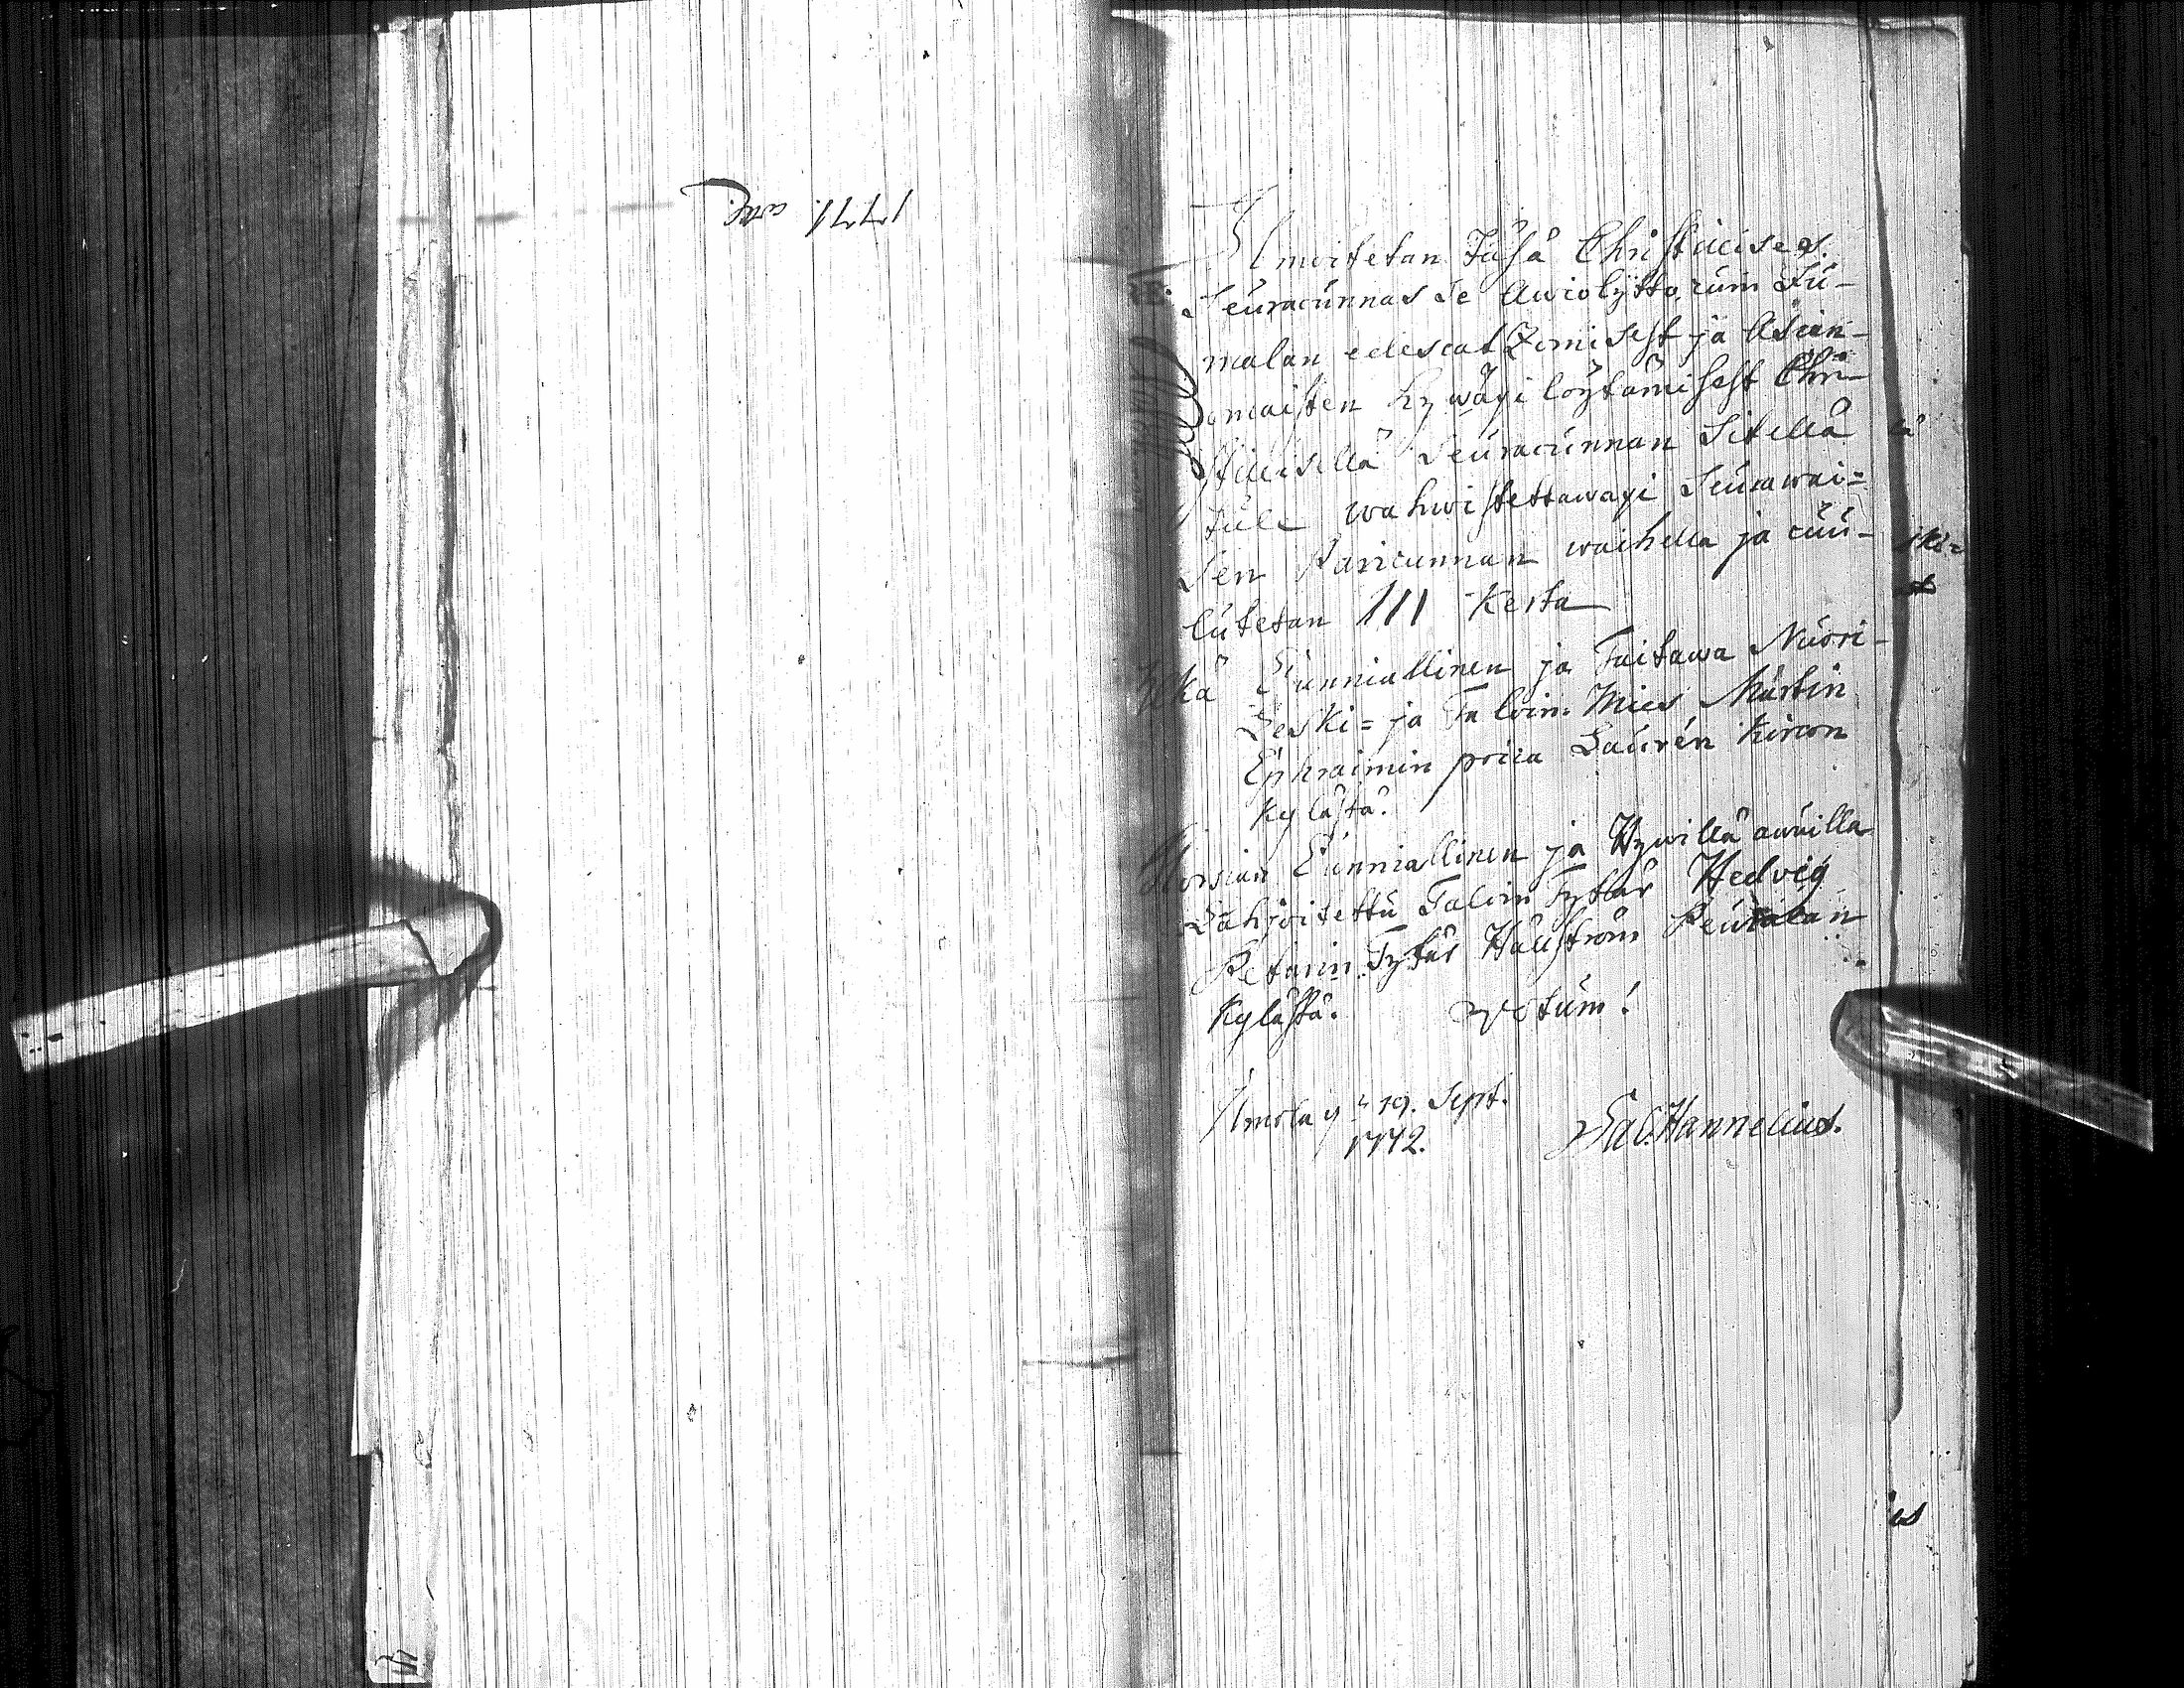 1771.
Ilmoitetan Täsä Christilises
Seuracunnas se Awiolijtto, cuin Ju-
malan edescatzomisest ja Asian-
omaisten hywäxi löytämisest Chri-
stilisellä Seuracunnan Sitellä
tule wahwistettawaxi Seurawai-
sen Pariscunnan waihella ja cuu-
lutetan III Kerta
Yljkä Cunniallinen ja Taitawa Nuori
Leski= ja Talon: Mies Martin
Ephraimin poica Laurén Kircon
Kylästä.
Morsian Cunniallinen ja Hywillä awuilla
Lahjoitettu Talon Tytär Hedvig
Petarin Tytär Hällström Peuralan
Kylästä. Votum!
Ilmola y 19. Sept.
1772.
Sal. Hannelius.